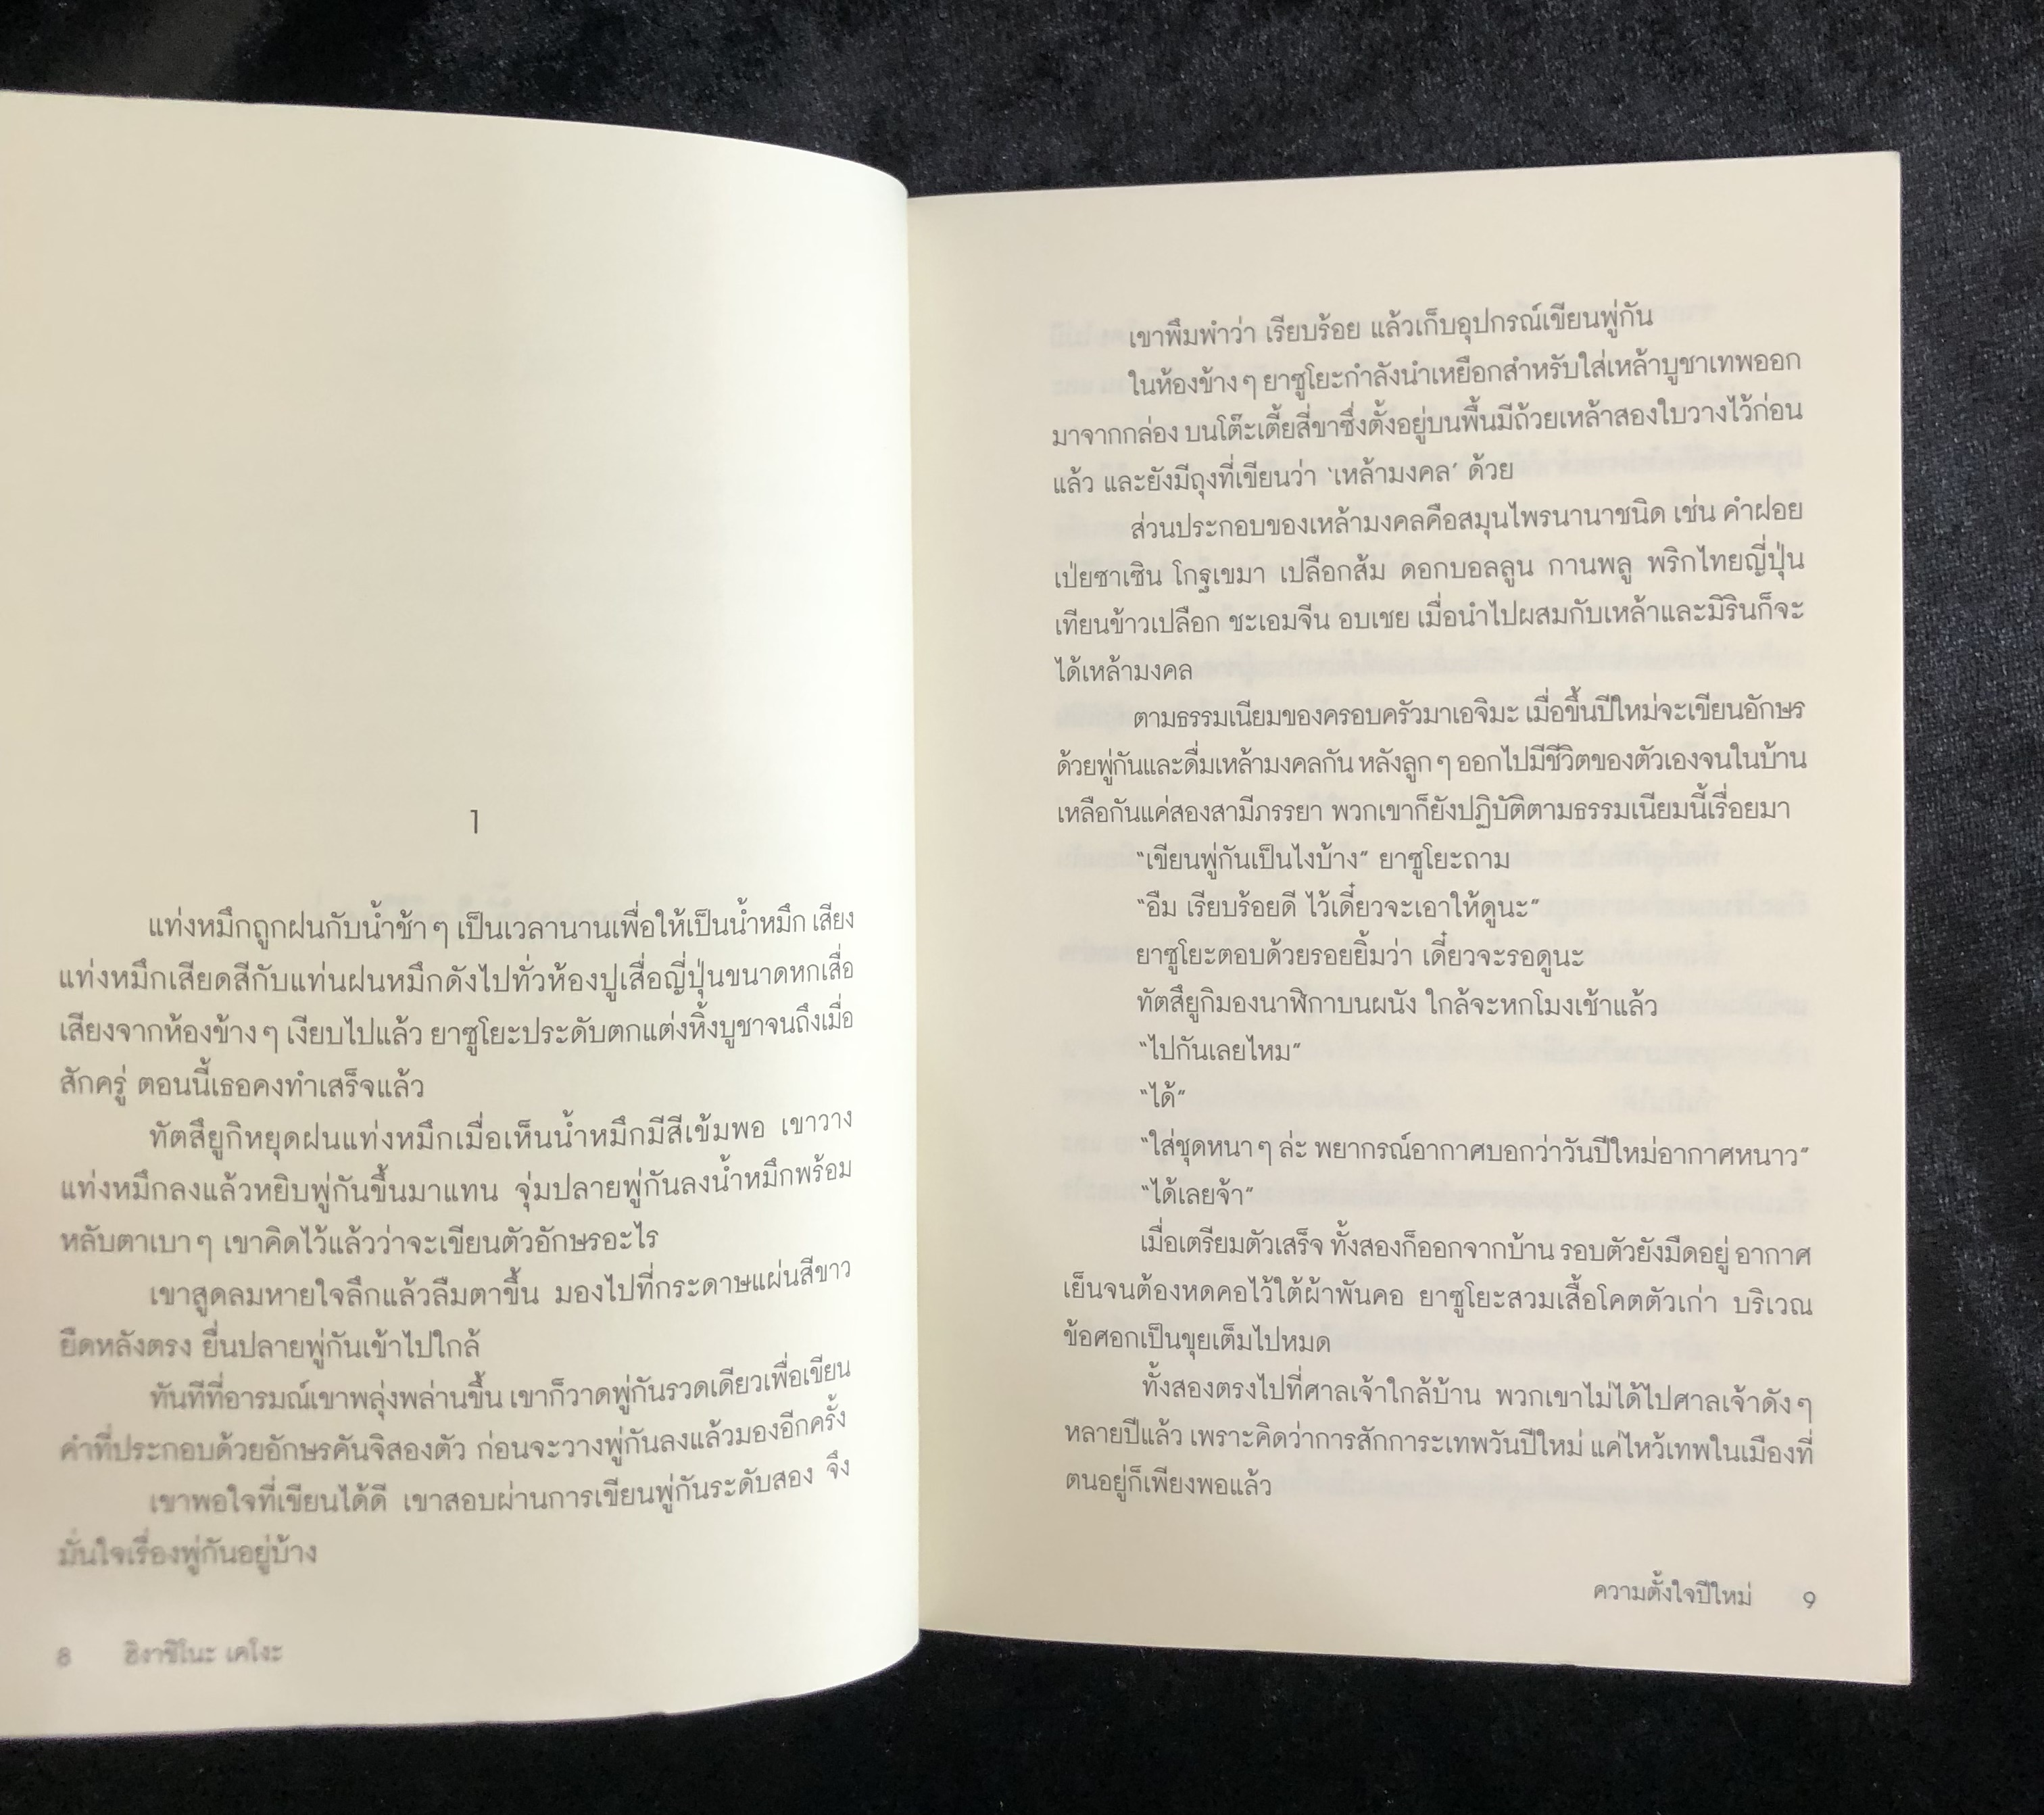 1
แท่งหมึกถูกฝนกับน้ำช้าๆ เป็นเวลานานเพื่อให้เป็นน้ำหมึก เสียง
แท่งหมึกเสียดสีกับแท่นฝนหมึกดังไปทั่วห้องปูเสื่อญี่ปุ่นขนาดหกเสื่อ
เสียงจากห้องข้างๆ เงียบไปแล้ว ยาซูโยะประดับตกแต่งหิ้งบูชาจนถึงเมื่อ
สักครู่ ตอนนี้เธอคงทำเสร็จแล้ว
ทัตสึยูกิหยุดฝนแท่งหมึกเมื่อเห็นน้ำหมึกมีสีเข้มพอ เขาวาง
แท่งหมึกลงแล้วหยิบพู่กันขึ้นมาแทน จุ่มปลายพู่กันลงน้ำหมึกพร้อม
หลับตาเบาๆ เขาคิดไว้แล้วว่าจะเขียนตัวอักษรอะไร
เขาสูดลมหายใจลึกแล้วลืมตาขึ้น มองไปที่กระดาษแผ่นสีขาว
ยืดหลังตรง ยื่นปลายพู่กันเข้าไปใกล้
ทันทีที่อารมณ์เขาพลุ่งพล่านขึ้น เขาก็วาดพู่กันรวดเดียวเพื่อเขียน
คำที่ประกอบด้วยอักษรคันจิสองตัว ก่อนจะวางพู่กันลงแล้วมองอีกครั้ง
เขาพอใจที่เขียนได้ดี เขาสอบผ่านการเขียนพู่กันระดับสอง จึง
มั่นใจเรื่องพู่กันอยู่บ้าง
8 ฮิงาชิโนะ เคโงะ
เขาพึมพำว่า เรียบร้อย แล้วเก็บอุปกรณ์เขียนพู่กัน
ในห้องข้างๆ ยาซูโยะกำลังนำเหยือกสำหรับใส่เหล้าบูชาเทพออก
มาจากกล่อง บนโต๊ะเตี้ยสี่ขาซึ่งตั้งอยู่บนพื้นมีถ้วยเหล้าสองใบวางไว้ก่อน
แล้ว และยังมีถุงที่เขียนว่า 'เหล้ามงคล' ด้วย
ส่วนประกอบของเหล้ามงคลคือสมุนไพรนานาชนิด เช่น คำฝอย
เป่ยซาเซิน โกฐเขมา เปลือกส้ม ดอกบอลลูน กานพลู พริกไทยญี่ปุ่น
เทียนข้าวเปลือก ชะเอมจีน อบเชย เมื่อนำไปผสมกับเหล้าและมิรินก็จะ
ได้เหล้ามงคล
ตามธรรมเนียมของครอบครัวมาเอจิมะ เมื่อขึ้นปีใหม่จะเขียนอักษร
ด้วยพู่กันและดื่มเหล้ามงคลกัน หลังลูกๆ ออกไปมีชีวิตของตัวเองจนในบ้าน
เหลือกันแค่สองสามีภรรยา พวกเขาก็ยังปฏิบัติตามธรรมเนียมนี้เรื่อยมา
"เขียนพู่กันเป็นไงบ้าง" ยาซูโยะถาม
"อืม เรียบร้อยดี ไว้เดี๋ยวจะเอาให้ดูนะ"
ยาซูโยะตอบด้วยรอยยิ้มว่า เดี๋ยวจะรอดูนะ
ทัตสึยูกิมองนาฬิกาบนผนัง ใกล้จะหกโมงเช้าแล้ว
"ไปกันเลยไหม"
"ได้"
"ใส่ชุดหนาๆ ล่ะ พยากรณ์อากาศบอกว่าวันปีใหม่อากาศหนาว"
"ได้เลยจ้า"
เมื่อเตรียมตัวเสร็จ ทั้งสองก็ออกจากบ้าน รอบตัวยังมืดอยู่ อากาศ
เย็นจนต้องหดคอไว้ใต้ผ้าพันคอ ยาซูโยะสวมเสื้อโคตตัวเก่า บริเวณ
ข้อศอกเป็นขุยเต็มไปหมด
ทั้งสองตรงไปที่ศาลเจ้าใกล้บ้าน พวกเขาไม่ได้ไปศาลเจ้าดังๆ
หลายปีแล้ว เพราะคิดว่าการสักการะเทพวันปีใหม่ แค่ไหว้เทพในเมืองที่
ตนอยู่ก็เพียงพอแล้ว
ความตั้งใจปีใหม่ 9